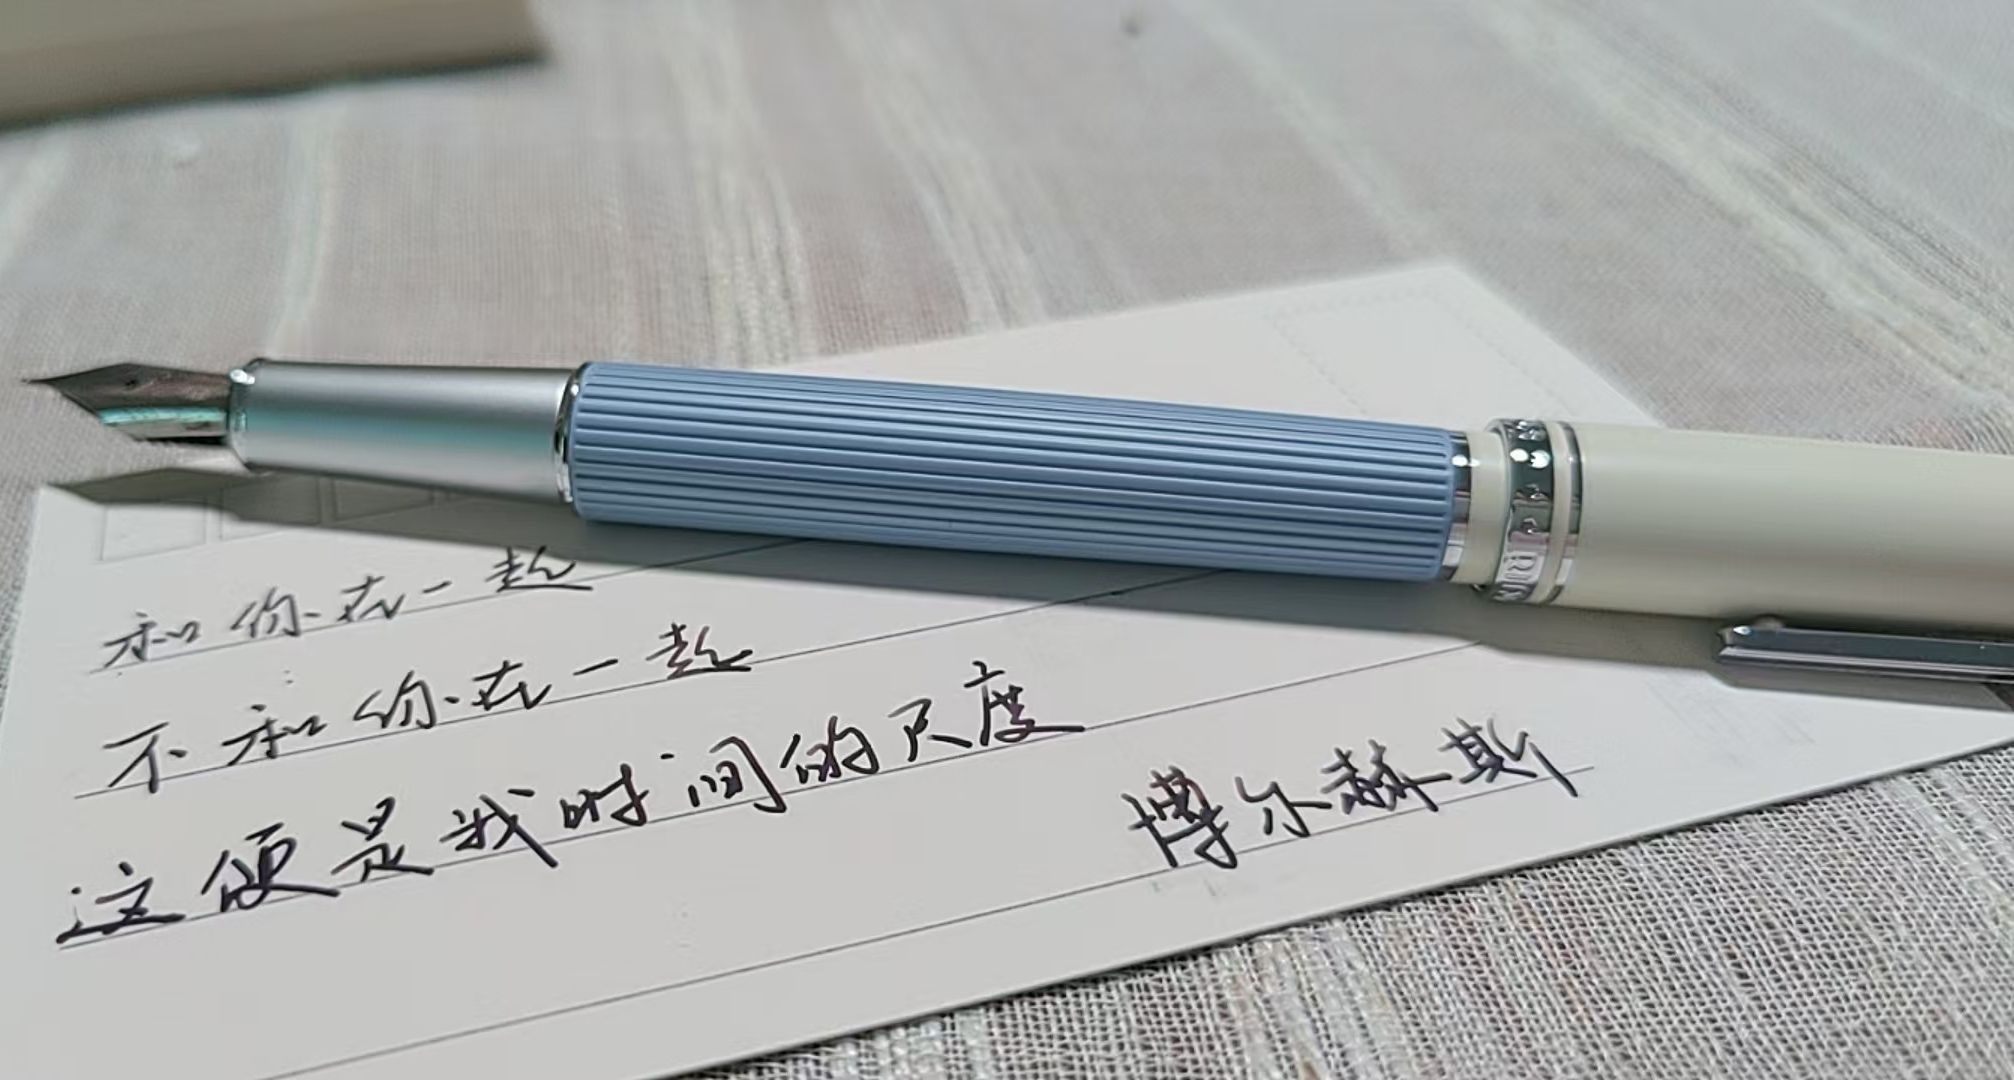 和你在一起
不和你在一起
这便是我时间的尺度
博尔赫斯